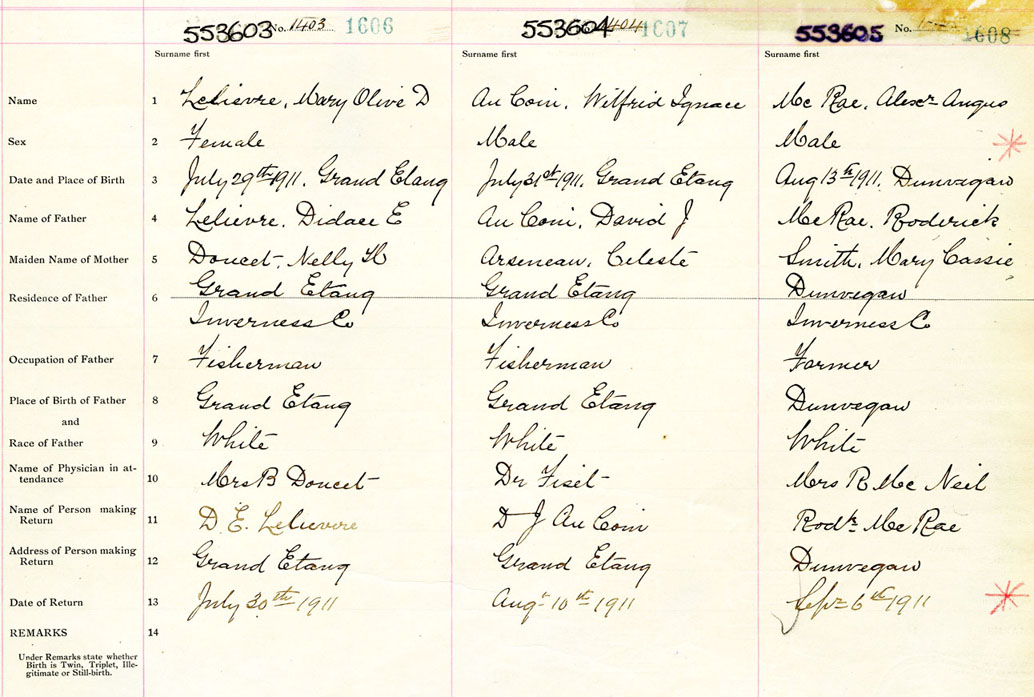 553603 No. 1403 1606 553604 1404 1607 553605 No. 1608
Surname first Surname first Surname first
Name 1 Lelievre, Mary Olive D Au Coin, Wilfrid Ignace Mc Rae, Alexr Angus
Sex 2 Female Male Male
Date and Place of Birth 3 July 29th 1911, Grand Etang July 31st 1911, Grand Etang Aug 13th 1911, Dunvegan
Name of Father 4 Lelievre, Didace E Au Coin, David J Mc Rae, Roderick
Maiden Name of Mother 5 Doucet, Nelly H Arseneau, Celeste Smith, Mary Cassie
Residence of Father 6 Grand Etang Grand Etang Dunvegan
Inverness Co Inverness Co Inverness Co
Occupation of Father 7 Fisherman Fisherman Farmer
Place of Birth of Father 8 Grand Etang Grand Etang Dunvegan
and
Race of Father 9 White White White
Name of Physician in at-
tendance 10 Mrs B Doucet Dr Fiset Mrs R Mc Neil
Name of Person making
Return 11 D. E. Lelievre D J Au Coin Rodk Mc Rae
Address of Person making
Return 12 Grand Etang Grand Etang Dunvegan
Date of Return 13 July 30th 1911 Aug 10th 1911 Sep 6th 1911
REMARKS 14
Under Remarks state whether
Birth is Twin, Triplet, Ille-
gitimate or Still-birth.